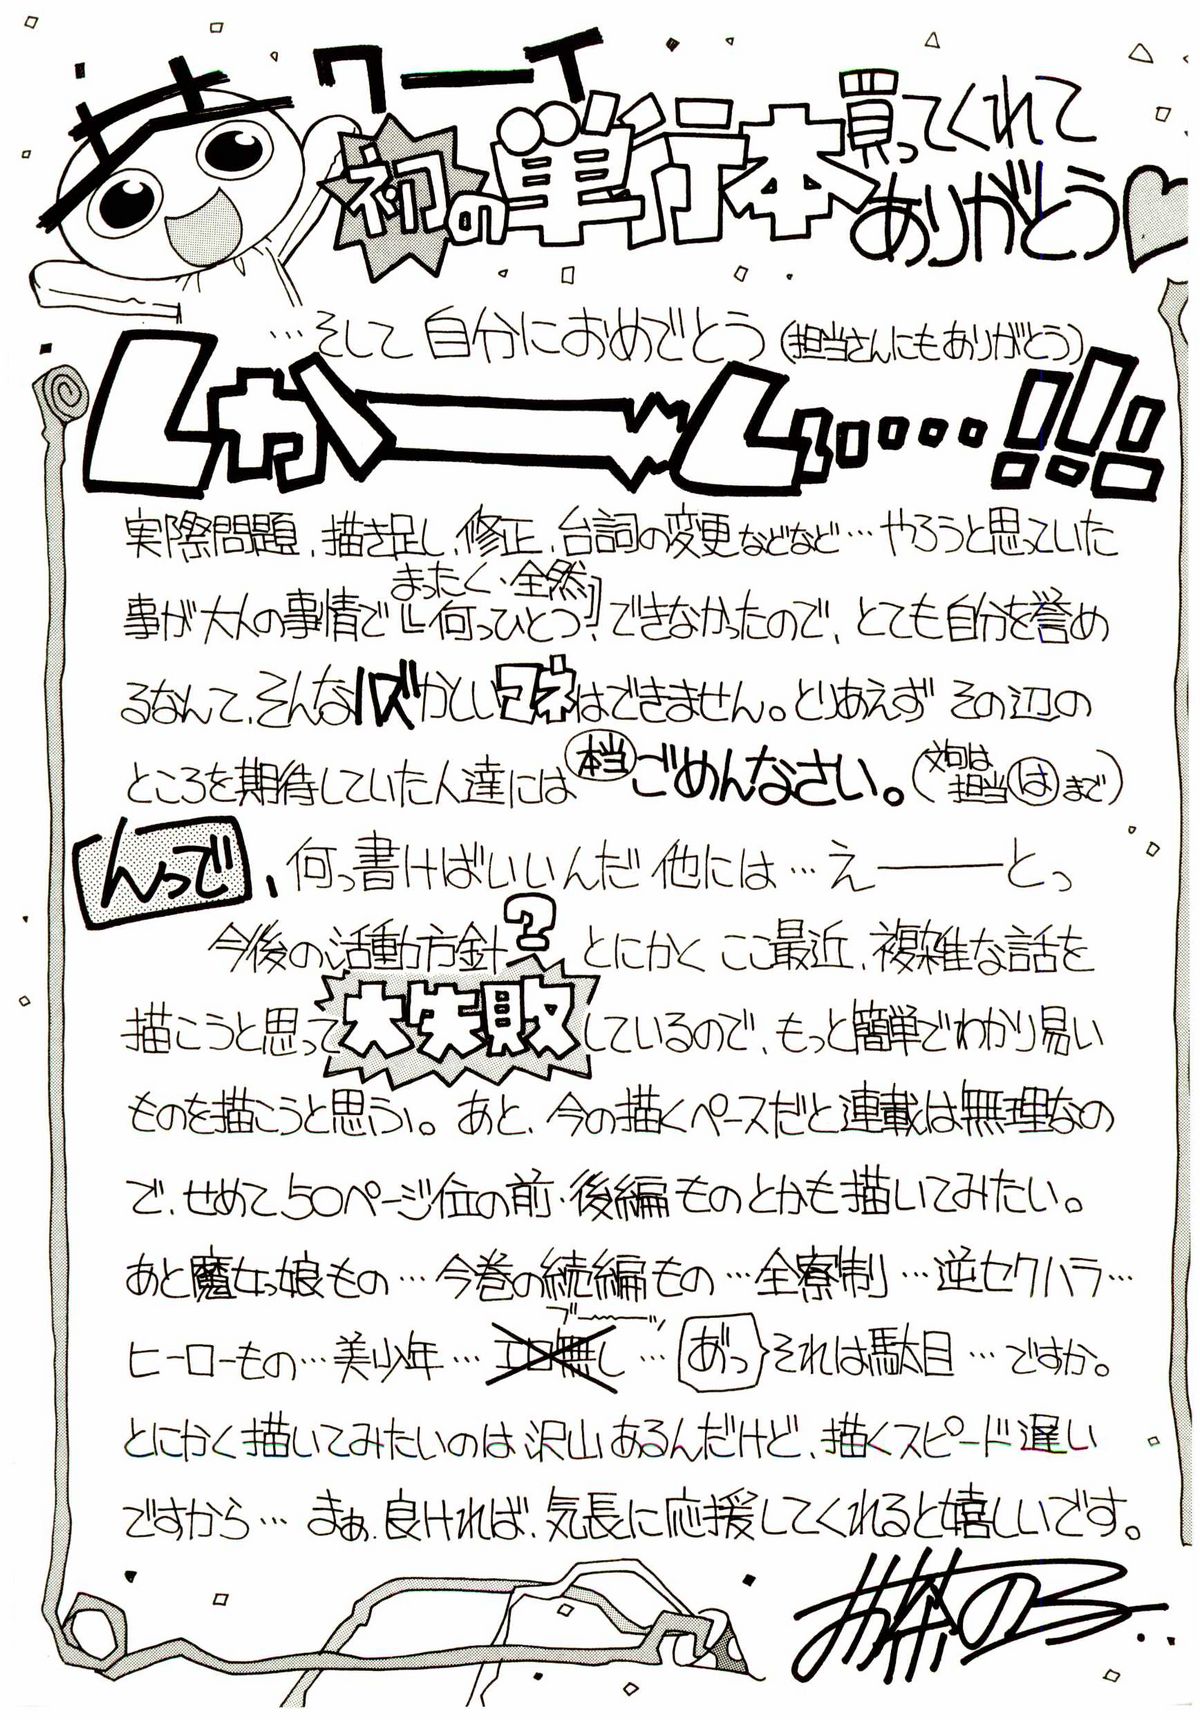 ワーイ
初の単行本買ってくれて
ありがとう♡
…そして自分におめでとう(担当さんにもありがとう)
しかーーしぃ…!!!
実際問題、描き足し、修正、台詞の変更などなど…やろうと思っていた
まったく・全然
事が大人の事情で『何っひとつ!』できなかったので、とても自分を誉め
るなんて、そんなハズかしいマネはできません。とりあえずその辺の
ところを期待していた人達には本当ごめんなさい。(文句は担当はまで)
んっで、何っ書けばいいんだ他には…えーーとっ
今後の活動方針?とにかくここ最近、複雑な話を
描こうと思って大失敗しているので、もっと簡単でわかり易い
ものを描こうと思うっ。あと、今の描くペースだと連載は無理なの
で、せめて50ページ位の前・後編ものとかも描いてみたい。
あと魔女っ娘もの…今巻の続編もの…全寮制…逆セクハラ…
ブーーッ
ヒーローもの…美少年…エロ無し…あ゛っそれは駄目…ですか。
とにかく描いてみたいのは沢山あるんだけど、描くスピード遅い
ですから…まぁ、良ければ、気長に応援してくれると嬉しいです。